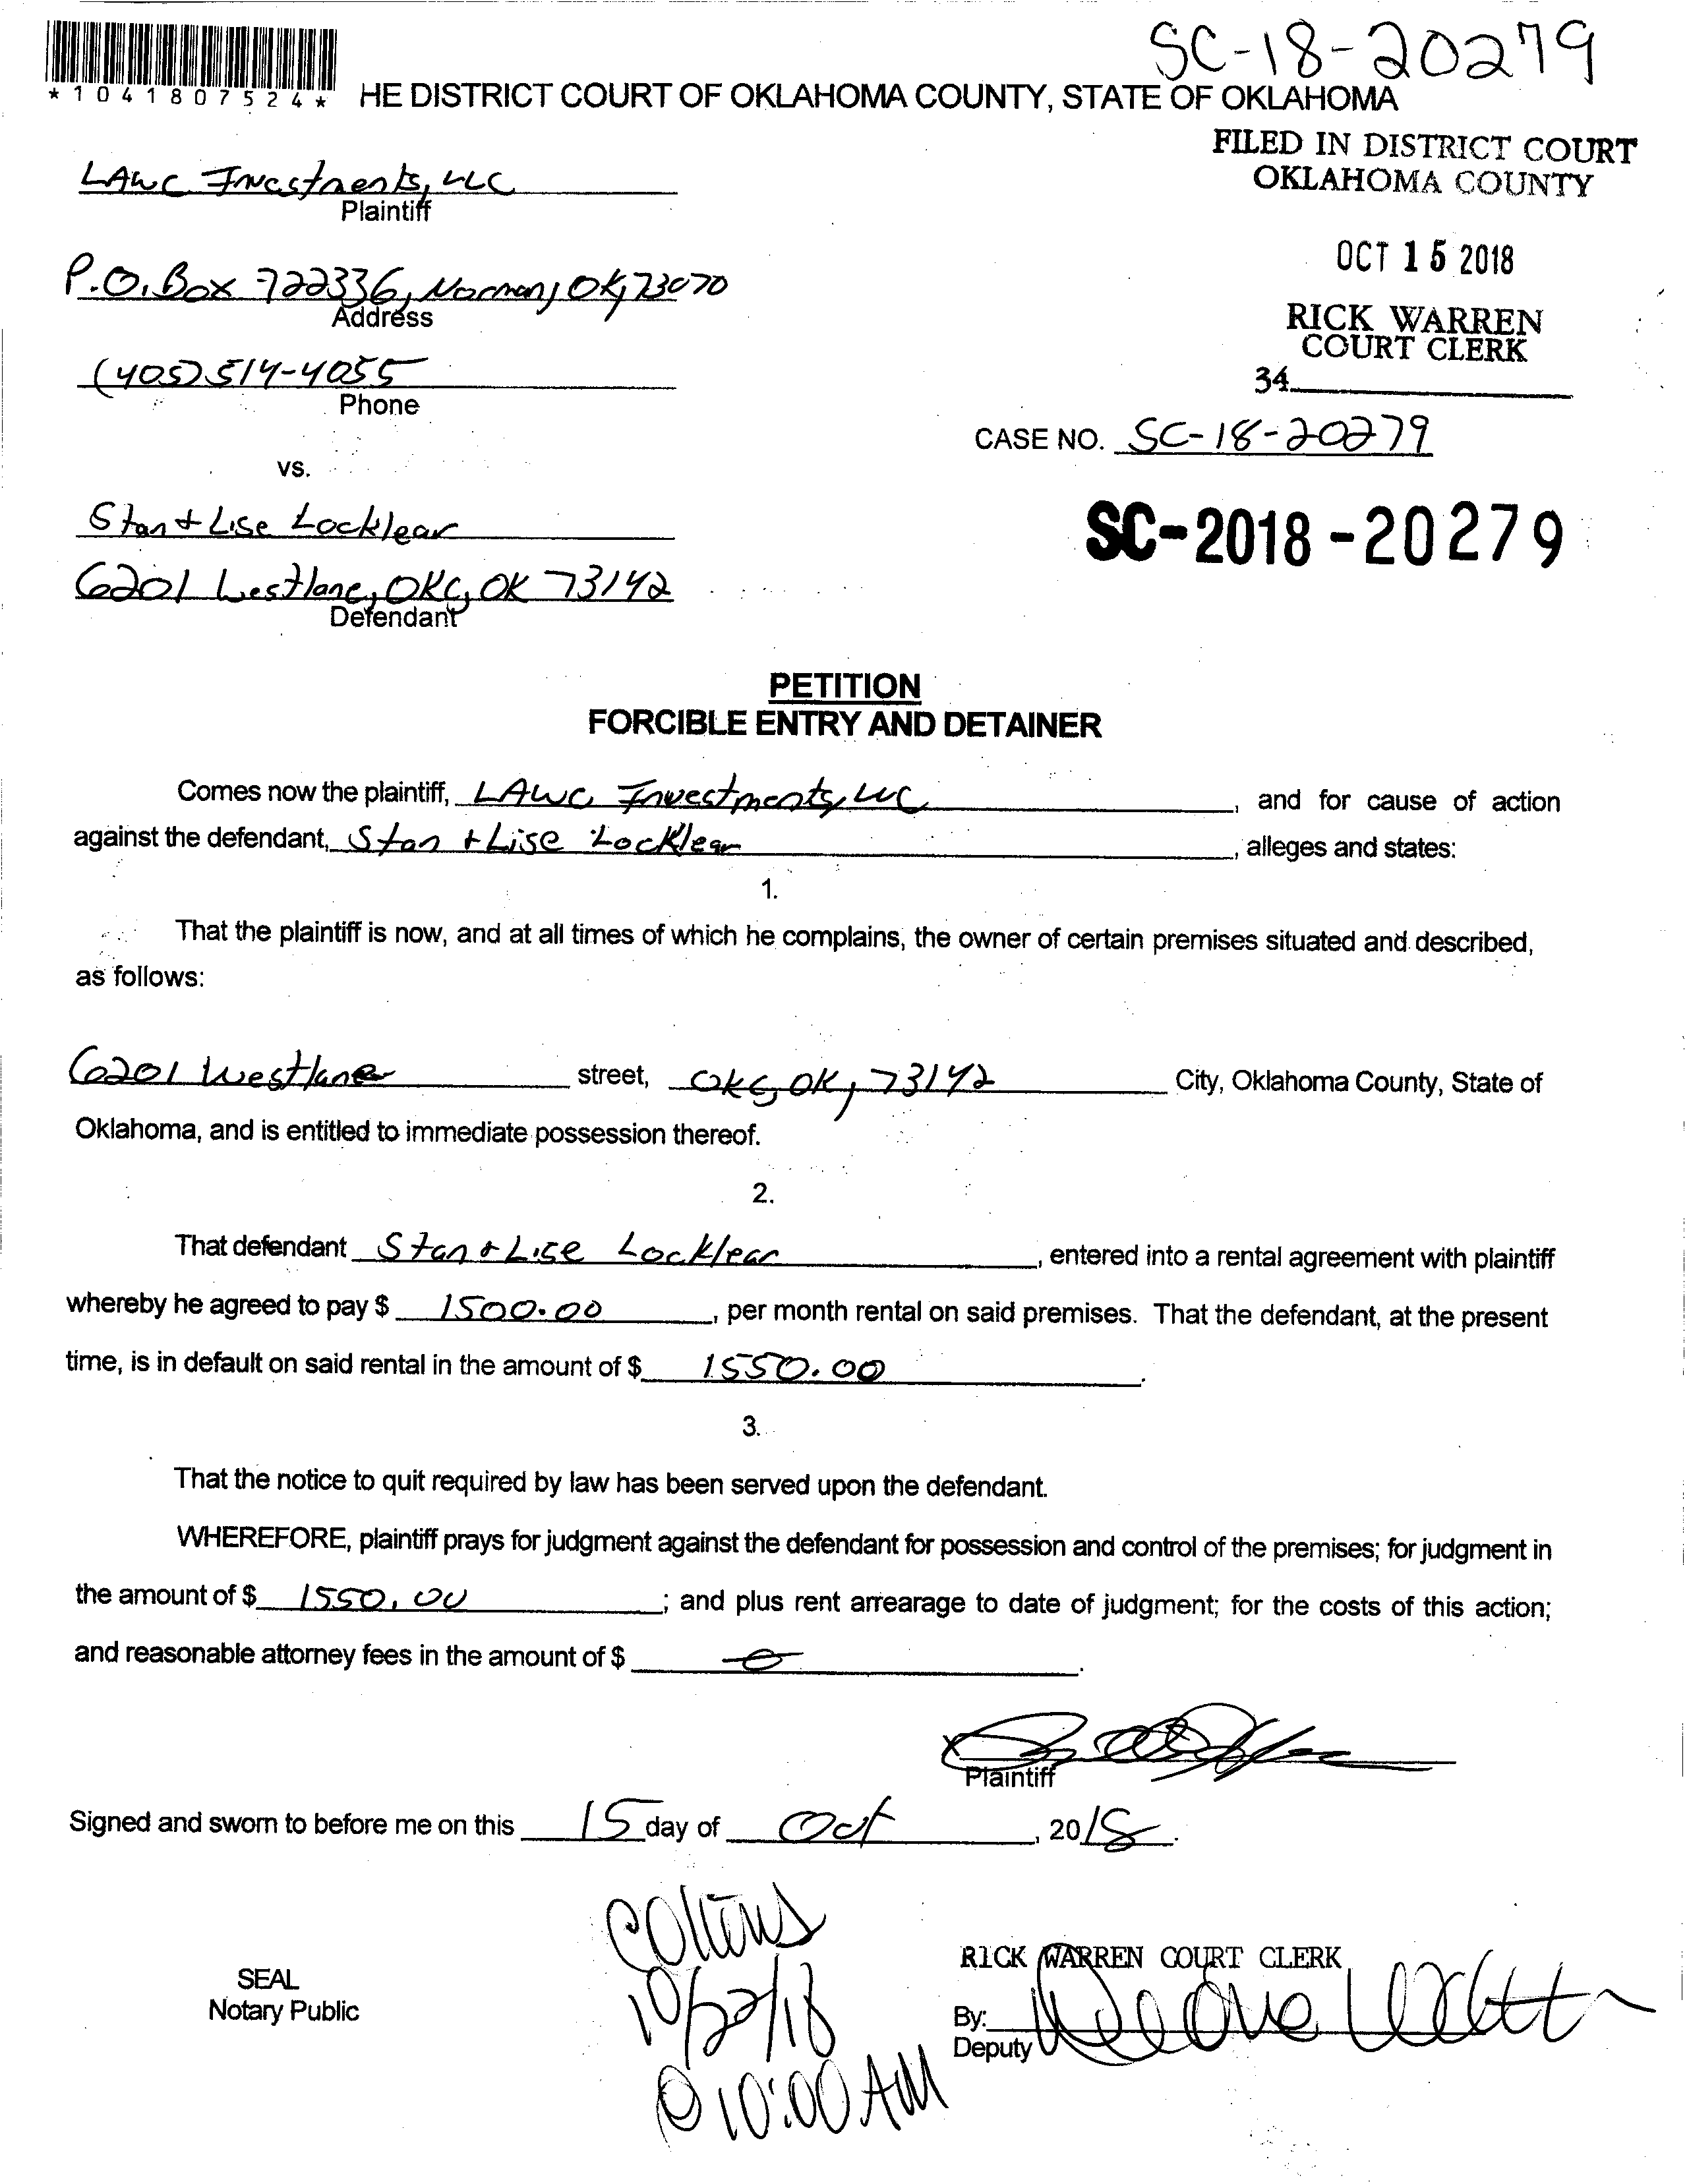 SC-18-20279
*1041807524*
HE DISTRICT COURT OF OKLAHOMA COUNTY, STATE OF OKLAHOMA
FILED IN DISTRICT COURT
OKLAHOMA COUNTY
LAWC Investments, LLC
Plaintiff
OCT 15 2018
P.O. Box 722336, Norman, OK, 73070
Address
RICK WARREN
COURT CLERK
(405) 514-4055
34
Phone
CASE NO. SC-18-20279
vs.
Stan + Lise Locklear
SC-2018-20279
6201 Westlane, OKC, OK 73142
Defendant
PETITION
FORCIBLE ENTRY AND DETAINER
Comes now the plaintiff, LAWC Investments, LLC, and for cause of action
against the defendant, Stan + Lise Locklear, alleges and states:
1.
That the plaintiff is now, and at all times of which he complains, the owner of certain premises situated and described,
as follows:
6201 Westlane street, OKC, OK, 73142 City, Oklahoma County, State of
Oklahoma, and is entitled to immediate possession thereof.
2.
That defendant Stan + Lise Locklear, entered into a rental agreement with plaintiff
whereby he agreed to pay $ 1500.00, per month rental on said premises. That the defendant, at the present
time, is in default on said rental in the amount of $ 1550.00.
3.
That the notice to quit required by law has been served upon the defendant.
WHEREFORE, plaintiff prays for judgment against the defendant for possession and control of the premises; for judgment in
the amount of $ 1550.00; and plus rent arrearage to date of judgment; for the costs of this action;
and reasonable attorney fees in the amount of $ 0.
X
Plaintiff
Signed and sworn to before me on this 15 day of Oct, 2018.
Collins
10/22/18
@ 10:00 AM
SEAL
Notary Public
RICK WARREN COURT CLERK
By:
Deputy